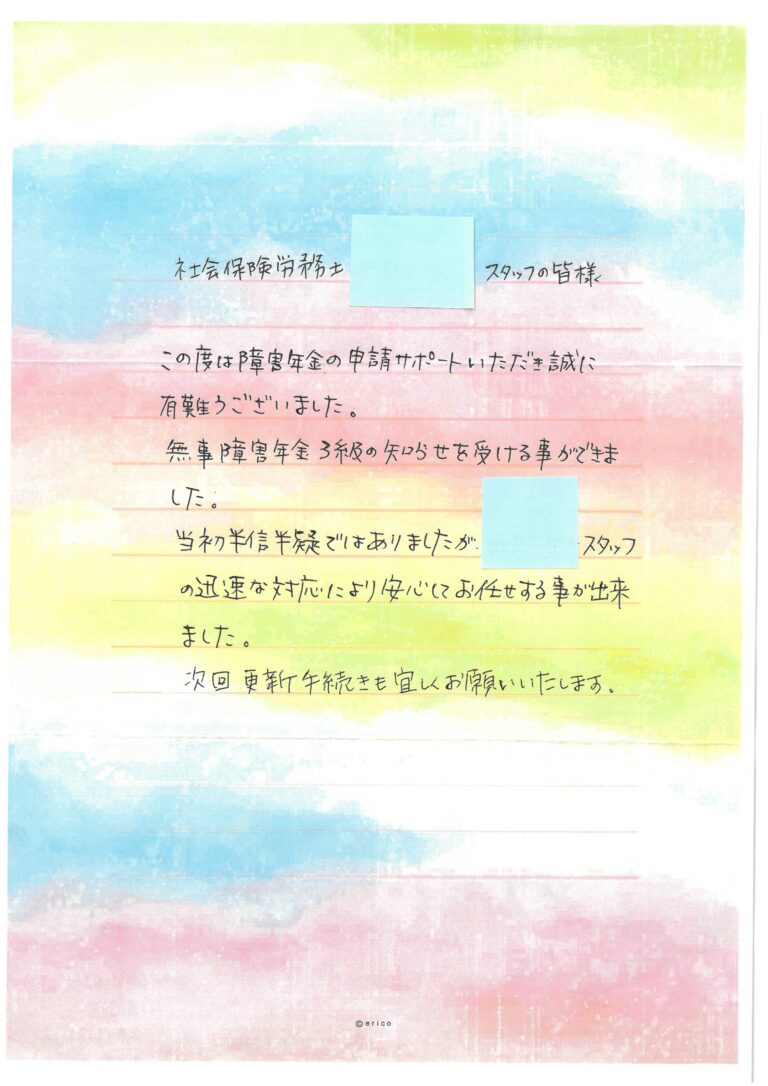 社会保険労務士 スタッフの皆様
この度は障害年金の申請サポートいただき誠に
有難うございました。
無事障害年金3級の知らせを受ける事ができま
した。
当初半信半疑ではありましたが、 スタッフ
の迅速な対応により安心してお任せする事が出来
ました。
次回更新手続きも宜しくお願いいたします。
©erico